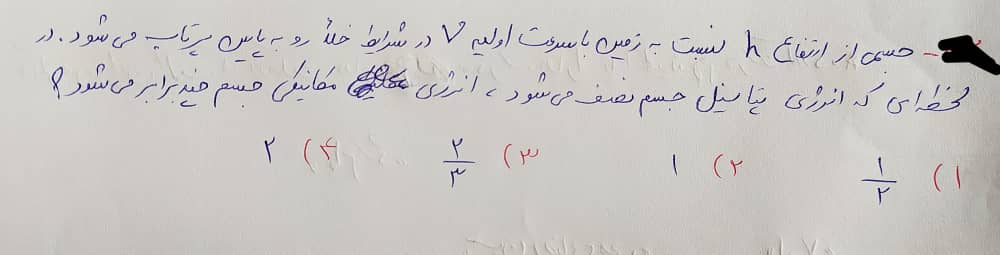 - جسمی از ارتفاع h نسبت به زمین با سرعت اولیه V در شرایط خلأ رو به پایین پرتاب می‌شود. در
لحظه‌ای که انرژی پتانسیل جسم نصف می‌شود، انرژی مکانیکی جسم چند برابر می‌شود؟
۱) ۱/۲ ۲) ۱ ۳) ۲/۳ ۴) ۲